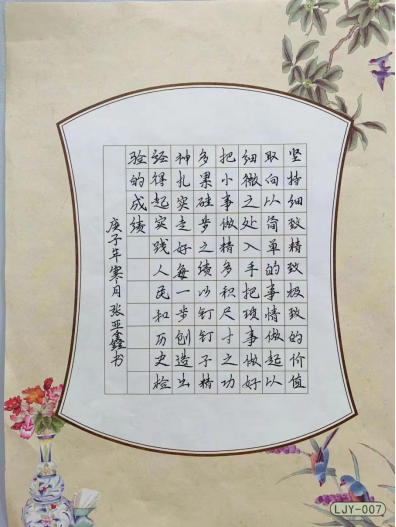 坚持细致精致极致的价值
取向以简单的事情做起以
细微之处入手把琐事做好
把小事做精多积尺寸之功
多果硅步之绩以钉钉子精
神扎实走好每一步创造出
经得起实践人民和历史检
验的成绩
庚子年寒月 张亚鑫书
LJY-007